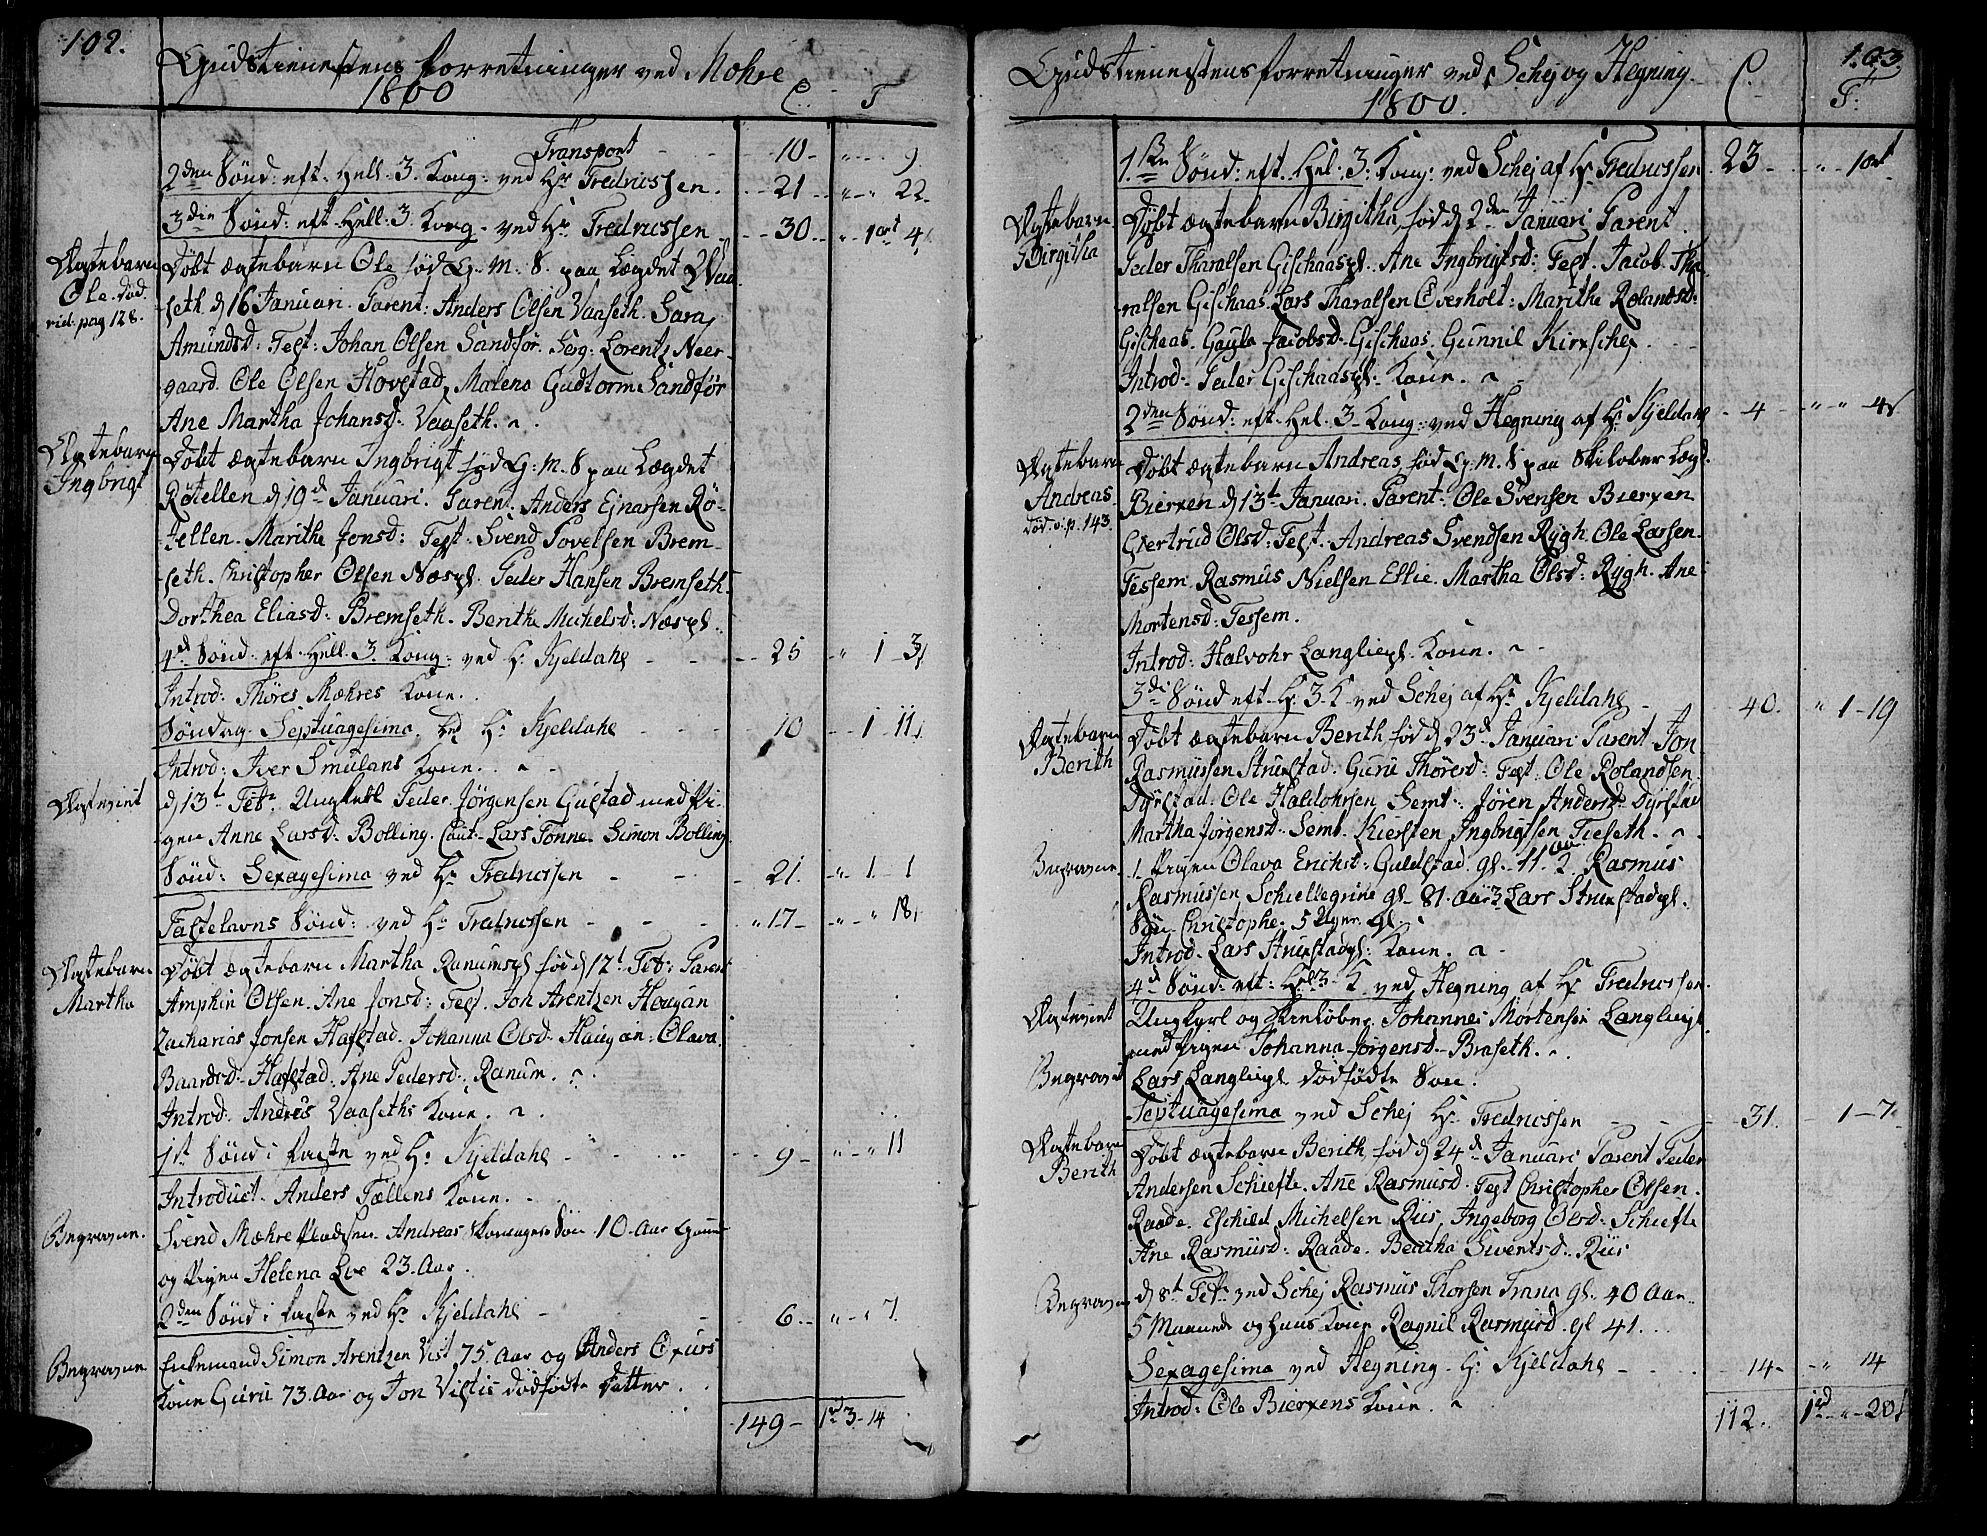 102.
Gudstienestens forretninger ved Mohre
1800
C. T
Transport - 10 - " - 9
2den Sønd: eft. Hell. 3. Kong: ved Hr Fredricssen. - 21 - " - 22
3die Sønd: eft Hell. 3. Kong. ved Hr Fredricssen - 30 - " 1ort 4
Ægtebarn
Ole. død.
vid. pag 128.
Døbt ægtebarn Ole fød G. M. S. paa Lægdet Vaa
seth d 16 Januari. Parent: Anders Olsen Vaaseth. Sara
Amundsd: Test: Johan Olsen Sandfør. Serg: Lorentz Neer-
gaard. Ole Olsen Hovstad, Malena Gudtorm Sandfør
Ane Martha Johansd: Vaaseth.
Ægtebarn
Ingbrigt
Døbt ægtebarn Ingbrigt fød G: M. S paa Lægdet
Røtellen d 19d Januari. Parent. Anders Ejnarsen Rø-
tellen. Marithe Jonsd: Test. Svend Povelsen Brem-
seth. Christopher Olsen Næspl. Peder Hansen Bremseth.
Dorthea Eliasd: Bremseth. Berithe Michelsd: Næspl.
4d Sønd. eft. Hell. 3. Kong: ved Hr Kjeldahl - 25 - " 1 - 3
Introd: Thøres Mæhres Kone.
Søndag Septuagesima. ved Hr Kjeldahl - 10 - 1 11
Introd: Iver Smulans Kone.
Ægteviet
d 13t Febr. Ungkarl Peder Jørgensen Gustad med Pi-
gen Anne Larsd: Bolling. Caut. Lars Tønne. Simon Bolling
Sønd: Sexagesima ved Hr Fredricssen - 21. - " 1 - 1
Fastelavns Sønd: ved Hr Fredricssen - " 17 - " - " 18
Ægtebarn
Martha
Døbt ægtebarn Martha Ranumspl fød d 12t Feb: Parent
Amphin Olsen. Ane Jonsd: Test. Jon Arentzen Haugan
Zacharias Jonsen Hafstad. Johanna Olsd. Haugan. Olava
Baardsd. Hafstad. Ane Pedersd. Ranum.
Introd. Anders Vaaseths Kone.
1st Sønd i Faste ved Hr Kjeldahl - 9 - " - " 11
Introduct. Anders Tællens Kone.
Begravne.
Svend Mæhre Pladsen. Andreas Skomagers Søn 10. Aar Gam
og Pigen Helena Loe 23. Aar.
2den Sønd i Faste ved Hr Kjeldahl - 6. - " - " 7
Begravne
Enkemand Simon Arentzen Vist 75. Aar og Anders Oxurs
Kone Guru 73. Aar og Jon Vistis dødfødte Datter.
149 - 1rd 3 - 14
103
Gudstienestens forretninger ved Schej og Hegning.
1800.
C. T:
1ste Sønd: eft. Hel. 3. Kong: ved Schej af Hr Fredricssen 23 - " - 1ort
Ægtebarn
Birgitha
Døbt ægtebarn Birgitha, fød d 2den Januari Parent
Peder Tharalsen Gischaaspl. Ane Ingbrigtsd: Test. Jacob Tha-
ralsen Gischaas. Lars Tharalsen Overholt: Marithe Rolandsd:
Gischaas. Gaula Jacobsd. Gischaas. Gunnil Kirxschej.
Introd: Peder Gischaaspl: Kone.
2den Sønd: eft. Hel. 3. Kong: ved Hegning af Hr Kjeldahl - 4 - " - " 4
Ægtebarn
Andreas
død. v. p. 143.
Døbt ægtebarn Andreas fød G: M. S paa Skilober Lægd.
Bierxen d 13t Januari. Parent: Ole Svensen Bierxen
Giertrud Olsd: Test. Andreas Svendsen Rygh. Ole Larsen.
Tessem. Rasmus Nielsen Eflie. Martha Olsd: Rygh. Ane
Mortensd: Tessem.
Introd: Halvohr Langliepl. Kone.
3di Sønd eft H. 3. K ved Schej af Hr Kjeldahl - 40. " 1 - 19
Ægtebarn
Berith
Døbt ægtebarn Berith fød d 23d Januari Parent Jon
Rasmussen Struxstad. Guru Thøresd: Test: Ole Rolandsen
Dyrstad. Ole Haldohrsen Semb. Jøren Andersd. Dyrstad
Martha Jørgensd: Semb. Kiersten Ingbrigtsen Tieseth.
Begravne
1. Pigen Olava Erichst: Guldstad. gl. 11. Aar 2. Rasmus
Rasmussen Schiellegrine gl. 81. Aar 3 Lars Struxstadspl.
Søn Christopher 5 Uger gl.
Introd. Lars Struxstadspl: Kone.
4d Sønd: eft: Hel 3. K ved Hegning af Hr Fredricssen.
Ægteviet
Ungkarl og Skieløber Johannes Mortensen Langliepl
med Pigen Johanna Jørgensd. Braseth.
Begravet
Lars Langliepl dødfødte Søn.
Septuagesima ved Schej Hr Fredricssen - 31. 1 - 7
Ægtebarn
Berith
Døbt ægtebarn Berith, fød d 24d Januari Parent Peder
Andersen Schiefte. Ane Rasmusd. Test Christopher Olsen.
Raade. Eschild Michelsen Riis, Ingeborg Olsd: Schiefte
Ane Rasmusd: Raade. Beritha Siventsd: Riis
Begravne
d 8t Febr ved Schej Rasmus Thorsen Trana gl. 40 Aar
5 Maaned og hans Kone Ragnil Rasmusd. gl 41.
Sexagesima ved Hegning. Hr Kjeldahl - 14 - " 14
Introd: Ole Bierxens Kone.
112. 1rd - " - 20